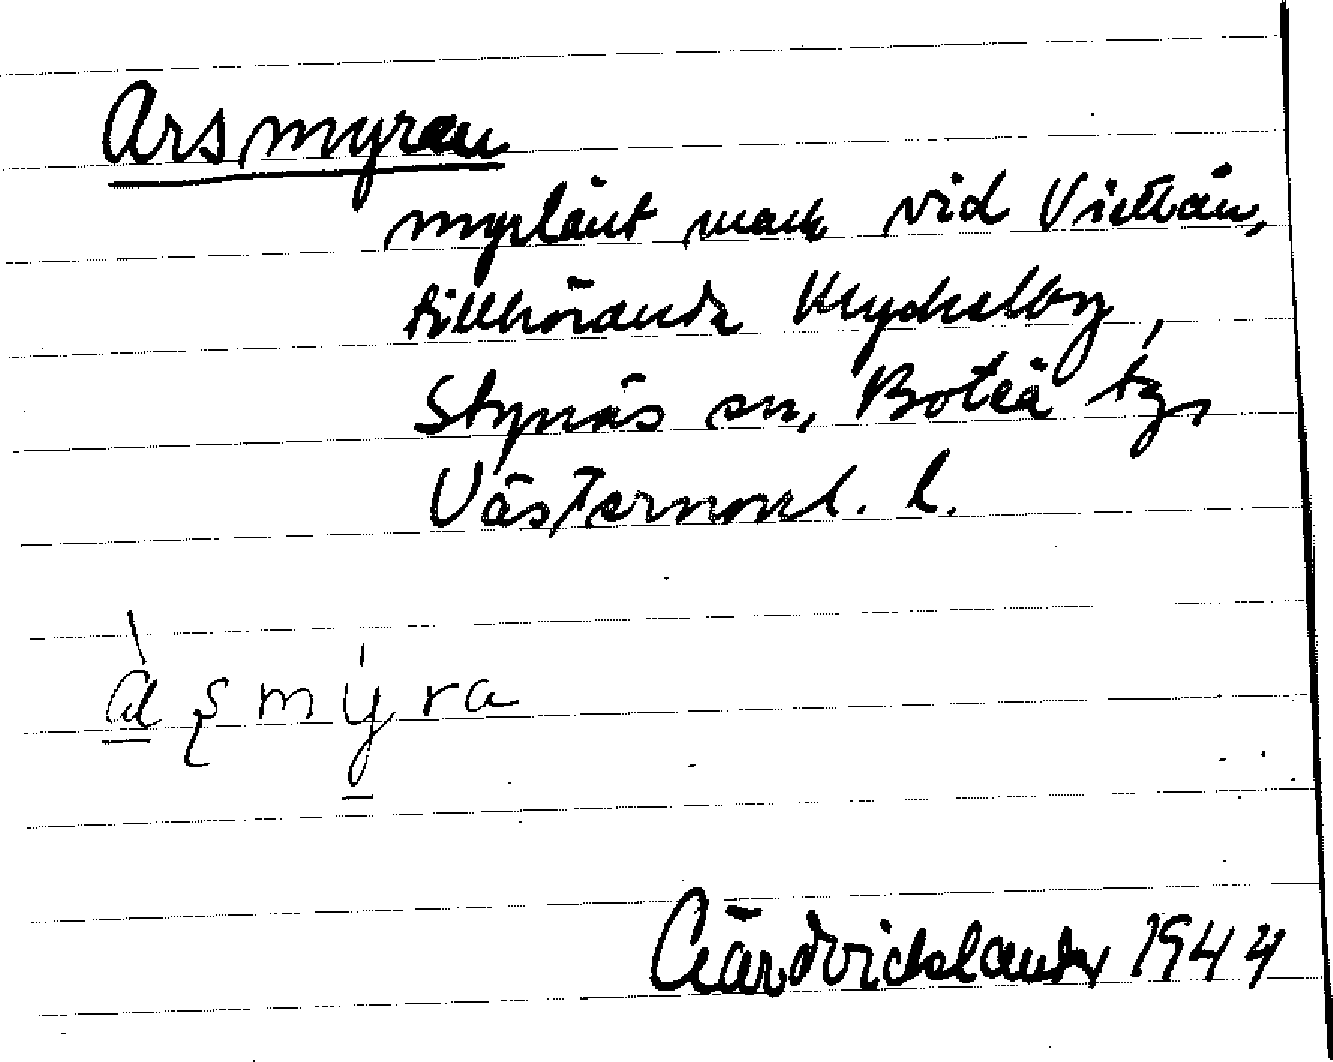 Arsmyran
myrlänt mark vid Vistbän,
tillhörande Myckelby,
Styrnäs sn, Boteå tg,
Västernorrl. l.
à̱ʂmy̱ra
Gärdvidslanda 1944